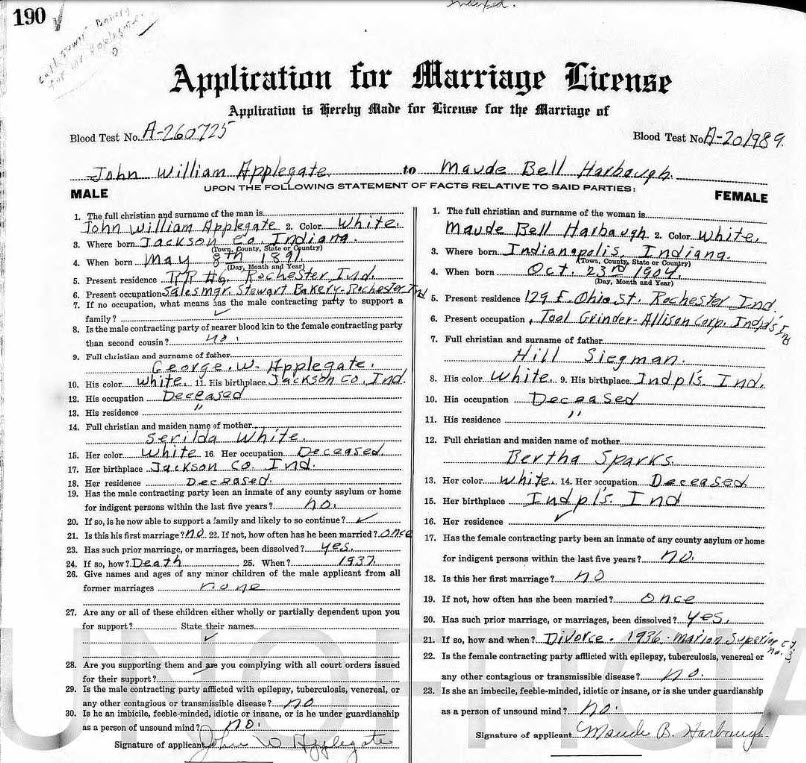 190
Application for Marriage License
Application is Hereby Made for License for the Marriage of
Blood Test No. A-260725
Blood Test No. A-201989.
John William Applegate to Maude Bell Harbaugh.
MALE
UPON THE FOLLOWING STATEMENT OF FACTS RELATIVE TO SAID PARTIES:
FEMALE
1. The full christian and surname of the man is
John William Applegate 2. Color White.
3. Where born Jackson Co. Indiana.
(Town, County, State or Country)
4. When born May 8th 1891
(Day, Month and Year)
5. Present residence RR #6. Rochester Ind.
6. Present occupation Salesmgr. Stewart Bakery-Rochester Ind
7. If no occupation, what means has the male contracting party to support a
family? ✓
8. Is the male contracting party of nearer blood kin to the female contracting party
than second cousin? no.
9. Full christian and surname of father
George. W. Applegate.
10. His color White. 11. His birthplace Jackson Co. Ind.
12. His occupation Deceased
13. His residence "
14. Full christian and maiden name of mother
Serilda White.
15. Her color White 16. Her occupation Deceased.
17. Her birthplace Jackson Co. Ind.
18. Her residence Deceased.
19. Has the male contracting party been an inmate of any county asylum or home
for indigent persons within the last five years? no.
20. If so, is he now able to support a family and likely to so continue? ✓
21. Is this his first marriage? no 22. If not, how often has he been married? once
23. Has such prior marriage, or marriages, been dissolved? yes.
24. If so, how? Death 25. When? 1937.
26. Give names and ages of any minor children of the male applicant from all
former marriages none
27. Are any or all of these children either wholly or partially dependent upon you
for support? State their names
✓
28. Are you supporting them and are you complying with all court orders issued
for their support?
29. Is the male contracting party afflicted with epilepsy, tuberculosis, venereal, or
any other contagious or transmissible disease? no
30. Is he an imbicile, feeble-minded, idiotic or insane, or is he under guardianship
as a person of unsound mind? no.
Signature of applicant John W Applegate
1. The full christian and surname of the woman is
Maude Bell Harbaugh 2. Color White.
3. Where born Indianapolis, Indiana.
(Town, County, State or Country)
4. When born Oct. 23rd 1904
(Day, Month and Year)
5. Present residence 129 E. Ohio St. Rochester Ind.
6. Present occupation, Tool Grinder-Allison Corp. Indp's Ind
7. Full christian and surname of father
Hill Siegman.
8. His color White. 9. His birthplace Indpl's. Ind.
10. His occupation Deceased
11. His residence "
12. Full christian and maiden name of mother
Bertha Sparks.
13. Her color White. 14. Her occupation Deceased
15. Her birthplace Indpl's. Ind
16. Her residence ✓
17. Has the female contracting party been an inmate of any county asylum or home
for indigent persons within the last five years? no.
18. Is this her first marriage? no
19. If not, how often has she been married? once
20. Has such prior marriage, or marriages, been dissolved? yes.
21. If so, how and when? Divorce. 1936-Marion Superior Ct. no. 3
22. Is the female contracting party afflicted with epilepsy, tuberculosis, venereal or
any other contagious or transmissible disease? no.
23. Is she an imbecile, feeble-minded, idiotic or insane, or is she under guardianship
as a person of unsound mind? no.
Signature of applicant Maude B. Harbaugh
UNOFFICIA